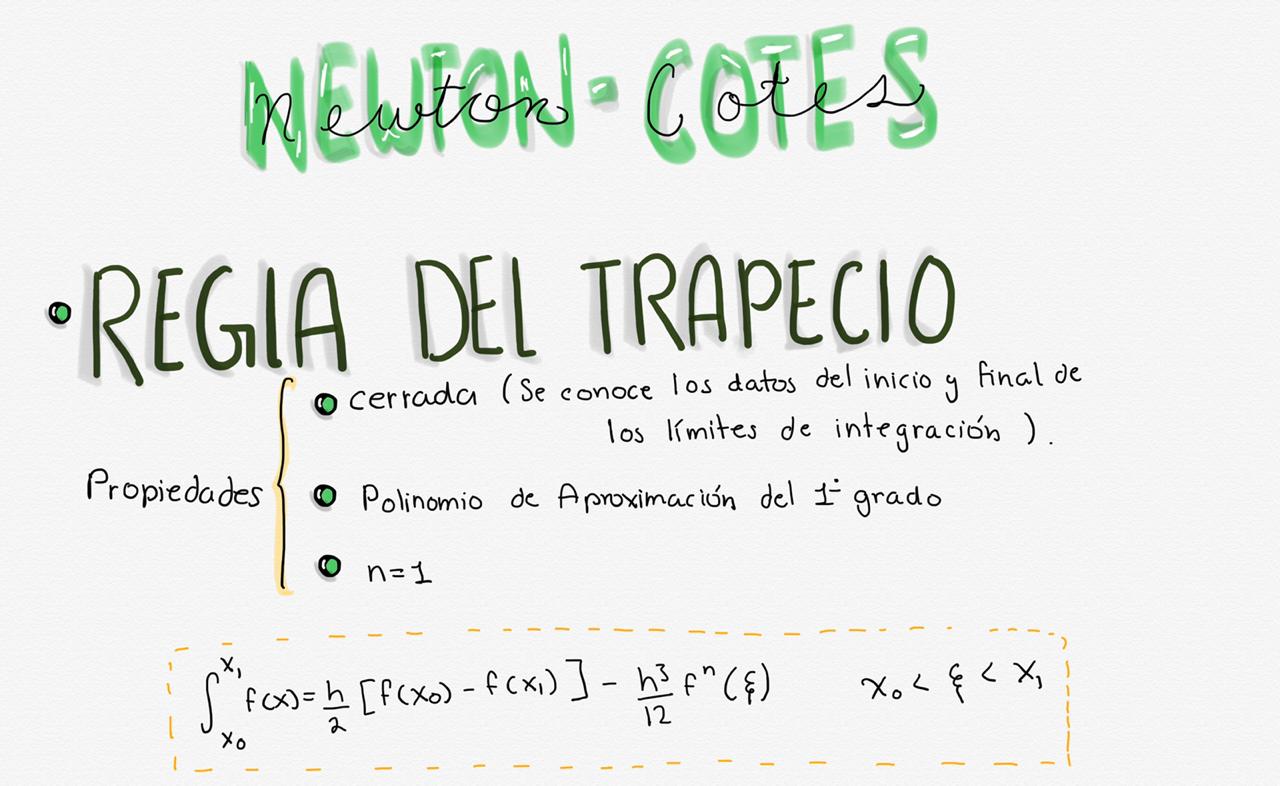 NEWTON-COTES
Newton Cotes
REGLA DEL TRAPECIO
cerrada (Se conoce los datos del inicio y final de
los límites de integración ).
Propiedades
Polinomio de Aproximación del 1° grado
n=1
∫_{x₀}^{x₁} f(x) = h/2 [f(x₀) - f(x₁)] - h³/12 fⁿ(ξ) x₀ < ξ < x₁